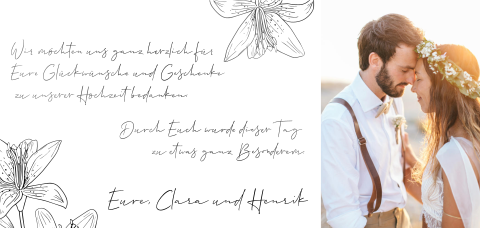 Wir möchten uns ganz herzlich für
Eure Glückwünsche und Geschenke
zu unserer Hochzeit bedanken.
Durch Euch wurde dieser Tag
zu etwas ganz Besonderem.
Eure, Clara und Henrik